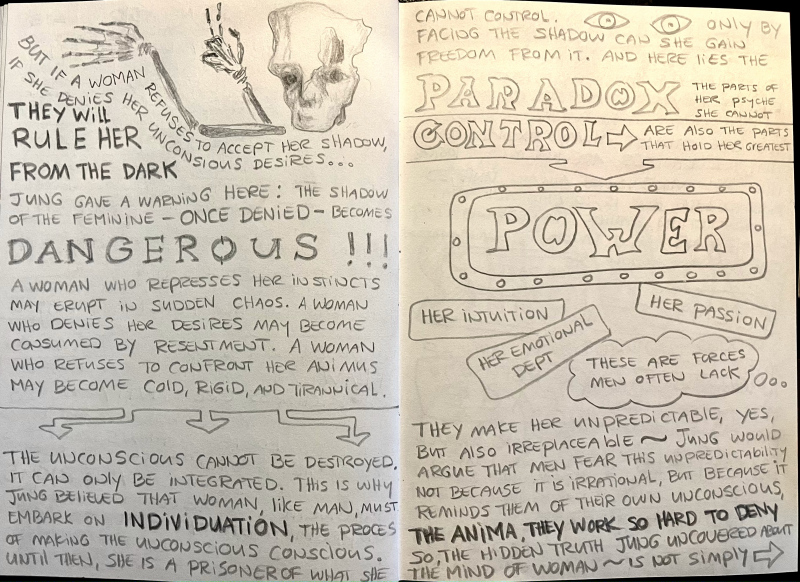 BUT IF A WOMAN REFUSES TO ACCEPT HER SHADOW,
IF SHE DENIES HER UNCONSIOUS DESIRES...
THEY WILL
RULE HER
FROM THE DARK
JUNG GAVE A WARNING HERE: THE SHADOW
OF THE FEMININE - ONCE DENIED - BECOMES
DANGEROUS !!!
A WOMAN WHO REPRESSES HER INSTINCTS
MAY ERUPT IN SUDDEN CHAOS. A WOMAN
WHO DENIES HER DESIRES MAY BECOME
CONSUMED BY RESENTMENT. A WOMAN
WHO REFUSES TO CONFRONT HER ANIMUS
MAY BECOME COLD, RIGID, AND TIRANNICAL.
THE UNCONSCIOUS CANNOT BE DESTROYED.
IT CAN ONLY BE INTEGRATED. THIS IS WHY
JUNG BELIEVED THAT WOMAN, LIKE MAN, MUST
EMBARK ON INDIVIDUATION, THE PROCES
OF MAKING THE UNCONSCIOUS CONSCIOUS.
UNTIL THEN, SHE IS A PRISONER OF WHAT SHE
CANNOT CONTROL. ONLY BY
FACING THE SHADOW CAN SHE GAIN
FREEDOM FROM IT. AND HERE LIES THE
PARADOX
THE PARTS OF
HER PSYCHE
SHE CANNOT
CONTROL
ARE ALSO THE PARTS
THAT HOLD HER GREATEST
POWER
HER INTUITION
HER PASSION
HER EMOTIONAL
DEPT
THESE ARE FORCES
MEN OFTEN LACK
THEY MAKE HER UNPREDICTABLE, YES,
BUT ALSO IRREPLACEABLE ~ JUNG WOULD
ARGUE THAT MEN FEAR THIS UNPREDICTABILITY
NOT BECAUSE IT IS IRRATIONAL, BUT BECAUSE IT
REMINDS THEM OF THEIR OWN UNCONSCIOUS,
THE ANIMA, THEY WORK SO HARD TO DENY
SO, THE HIDDEN TRUTH JUNG UNCOVERED ABOUT
THE MIND OF WOMAN ~ IS NOT SIMPLY